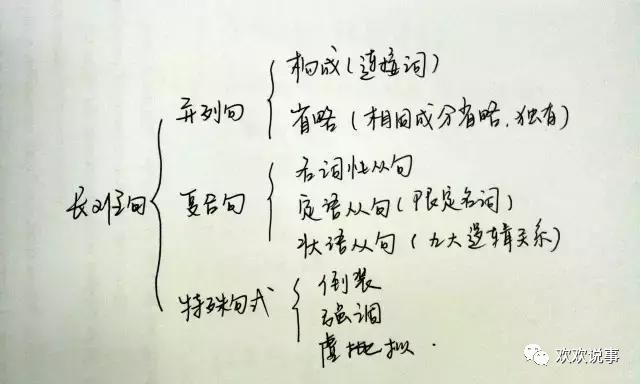 长难句
并列句
构成(连接词)
省略(相同成分省略.独有)
复合句
名词性从句
定语从句(限定名词)
状语从句(九大逻辑关系)
特殊句式
倒装
强调
虚拟.
欢欢说事